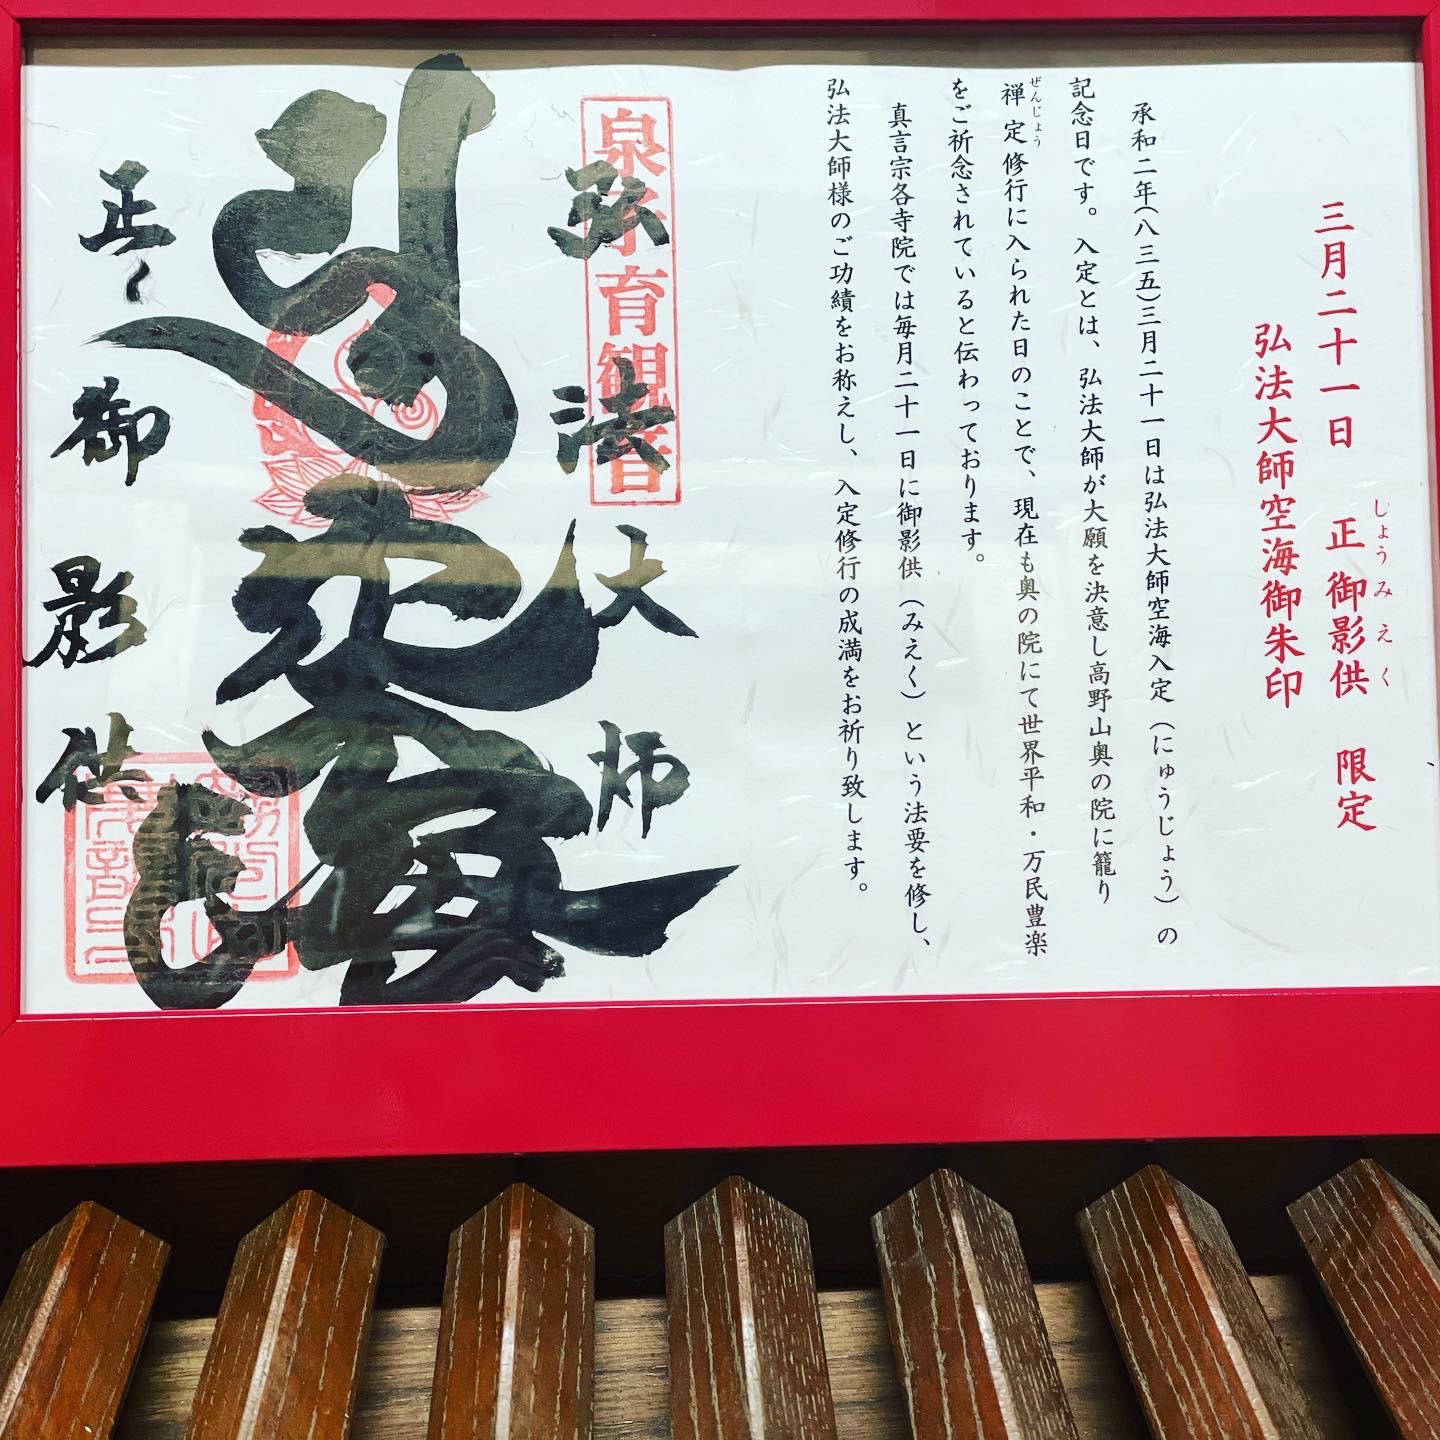 三月二十一日 正御影供 限定
しょうみえく
弘法大師空海御朱印
承和二年(八三五)三月二十一日は弘法大師空海入定（にゅうじょう）の
記念日です。入定とは、弘法大師が大願を決意し高野山奥の院に籠り
禅定修行に入られた日のことで、現在も奥の院にて世界平和・万民豊楽
ぜんじょう
をご祈念されていると伝わっております。
真言宗各寺院では毎月二十一日に御影供（みえく）という法要を修し、
弘法大師様のご功績をお称えし、入定修行の成満をお祈り致します。
泉子育観音
弘法大師
正御影供